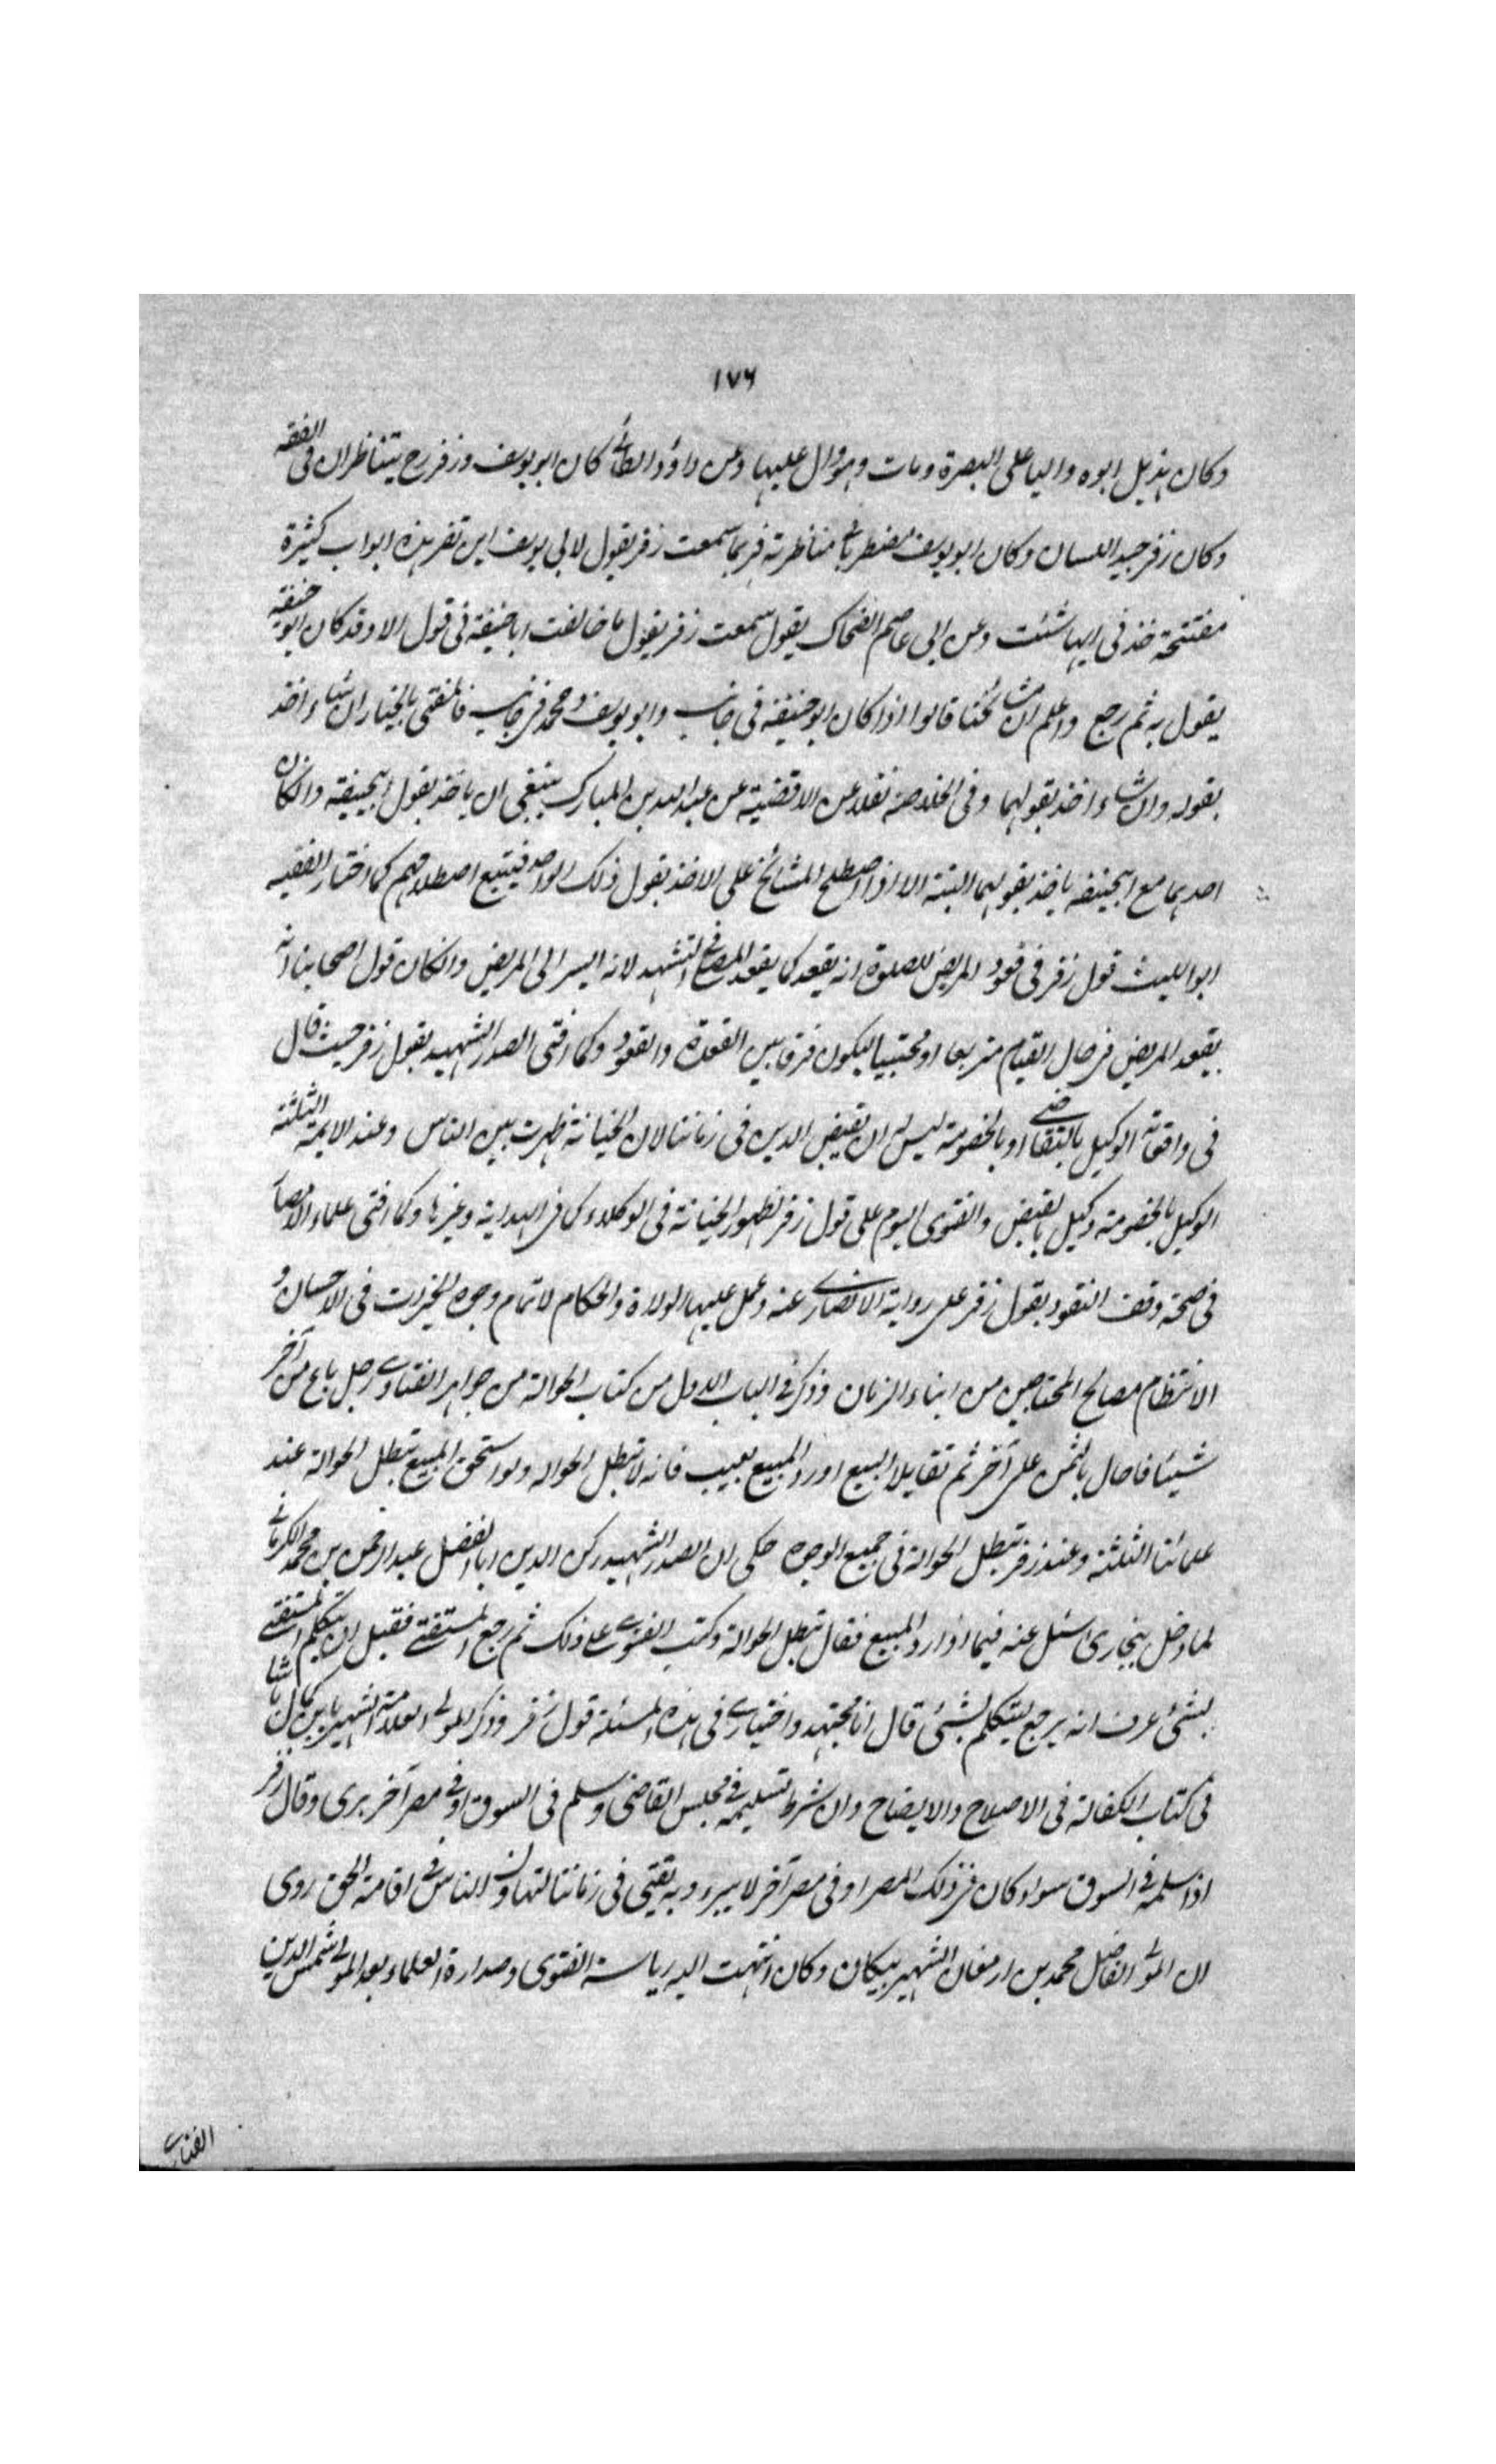 ١٧٦
وكان هذيل ابوه واليا على البصرة ومات وهو وال عليها وعن داؤد الطائى كان ابو يوسف وزفر رح يتناظران فى الفقه
وكان زفر جيد اللسان وكان ابو يوسف مضطربا فى مناظرته فربما سمعت زفر يقول لابى يوسف اين تفر هذه ابواب كثيرة
مفتتحة خذ فى ايها شئت وعن ابى عاصم الضحاك يقول سمعت زفر يقول ما خالفت ابا حنيفة فى قول الا وقد كان ابو حنيفه
يقول به ثم رجع واعلم ان مشائخنا قالوا اذا كان ابو حنيفة فى جانب وابو يوسف ومحمد فى جانب فالمفتى بالخيار ان شاء اخذ
بقوله وان شاء اخذ بقولهما وفى الخلاصة نقلا عن الاقضية عن عبد الله بن المبارك ينبغى ان ياخذ بقول ابيحنيفة وانكان
احدهما مع ابيحنيفه ياخذ بقولهما البتة الا اذا اصطلح المشائخ على الاخذ بقول ذلك الواحد فيتبع اصطلاحهم كما اختار الفقيه
ابو الليث قول زفر فى قعود المريض للصلوة انه يقعد كما يقعد المصلى فى التشهد لانه ايسر الى المريض وانكان قول اصحابنا انه
يقعد المريض فى حال القيام متربعا او محتبيا ليكون فرقا بين القعدة والقعود وكما افتى الصدر الشهيد بقول زفر حيث قال
فى واقعاته الوكيل بالتقاضى او بالخصومة ليس له ان يقبض الدين فى زماننا لان الخيانة ظهرت بين الناس وعند الايمة الثلثة
الوكيل بالخصومة وكيل بالقبض والفتوى اليوم على قول زفر لظهور الخيانة فى الوكلاء كما فى الهداية وغيرها وكما افتى علماء الامصار
فى صحة وقف النقود بقول زفر على رواية الانصارى عنه وعمل عليها الولاة والحكام لاتمام وجوه الخيرات فى الاحسان و
الانتظام مصالح المحتاجين من ابناء الزمان وذكر فى الباب الاول من كتاب الحوالة من جواهر الفتاوى رجل باع من آخر
شيئا فاحال بالثمن على آخر ثم تقايلا البيع او رد المبيع بعيب فانه لا تبطل الحواله ولو استحق المبيع تبطل الحوالة عند
علمائنا الثلثة وعند زفر تبطل الحوالة فى جميع الوجوه حكى ان الصدر الشهيد ركن الدين ابا الفضل عبد الرحمن بن محمد الكرمانى
لما دخل بخارى اسئل عنه فيما اذا رد المبيع فقال تبطل الحوالة وكتب الفتوى على ذلك ثم رجع المستفتى فقبل ان يتكلم المستفتى
بشئ عرف انه يرجع يتكلم بشئ قال انا مجتهد واختيارى فى هذه المسئلة قول زفر وذكر المولى العلامة الشهير بابن كمال باشا
فى كتاب الكفالة فى الاصلاح والايضاح وان شرط تسليمه فى مجلس القاضى وسلم فى السوق او فى مصر آخر برى وقال زفر
اذا سلمه فى السوق سواء كان فى ذلك المصر او فى مصر آخر لا يبرء وبه يفتى فى زماننا لتهاون الناس فى اقامة الحق روى
ان المولى الفاضل محمد بن ارمغان الشهير بيكان وكان انتهت اليه رياسة الفتوى وصدارة العلماء بعد المولى شمس الدين
الفنارى